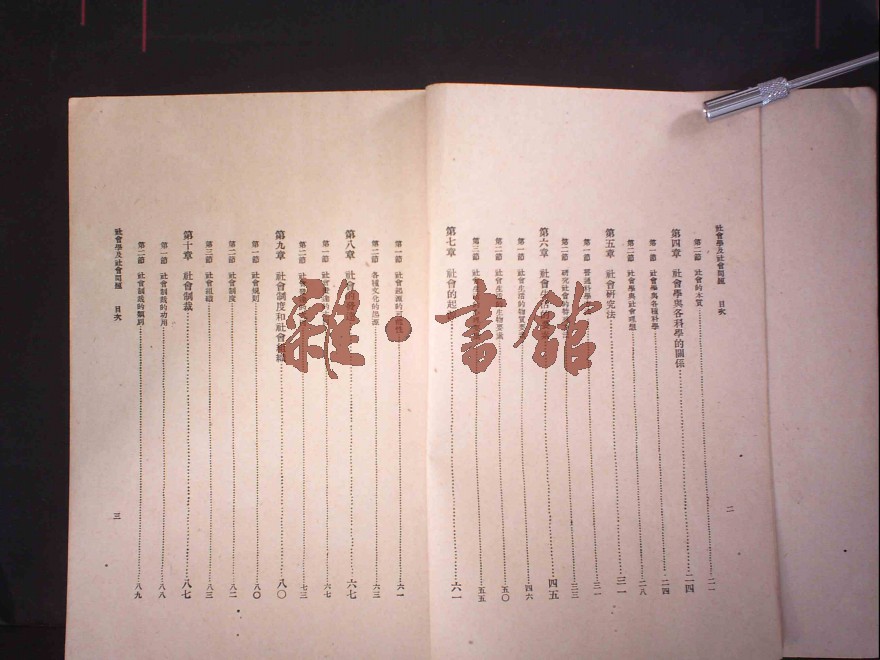 社會學及社會問題　目次
二
第二節　社會的本質……二一
第四章　社會學與各科學的關係……二四
第一節　社會學與各種科學……二四
第二節　社會學與社會理想……二八
第五章　社會研究法……三一
第一節　普通科學……三一
第二節　研究社會的特……三三
第六章　社會……四五
第一節　社會生活的物質要……四六
第二節　社會生活的生物要素……五〇
第三節　社會生……五五
第七章　社會的起……六一
第一節　社會起源的……六一
第二節　各種文化的起源……六三
第八章　社會……六七
第一節　社會變遷的……六七
第二節　社會……七三
第九章　社會制度和社會組織……八〇
第一節　社會規則……八〇
第二節　社會制度……八二
第三節　社會組織……八三
第十章　社會制裁……八七
第一節　社會制裁的功用……八八
第二節　社會制裁的類別……八九
社會學及社會問題　目次
三
雜·書館